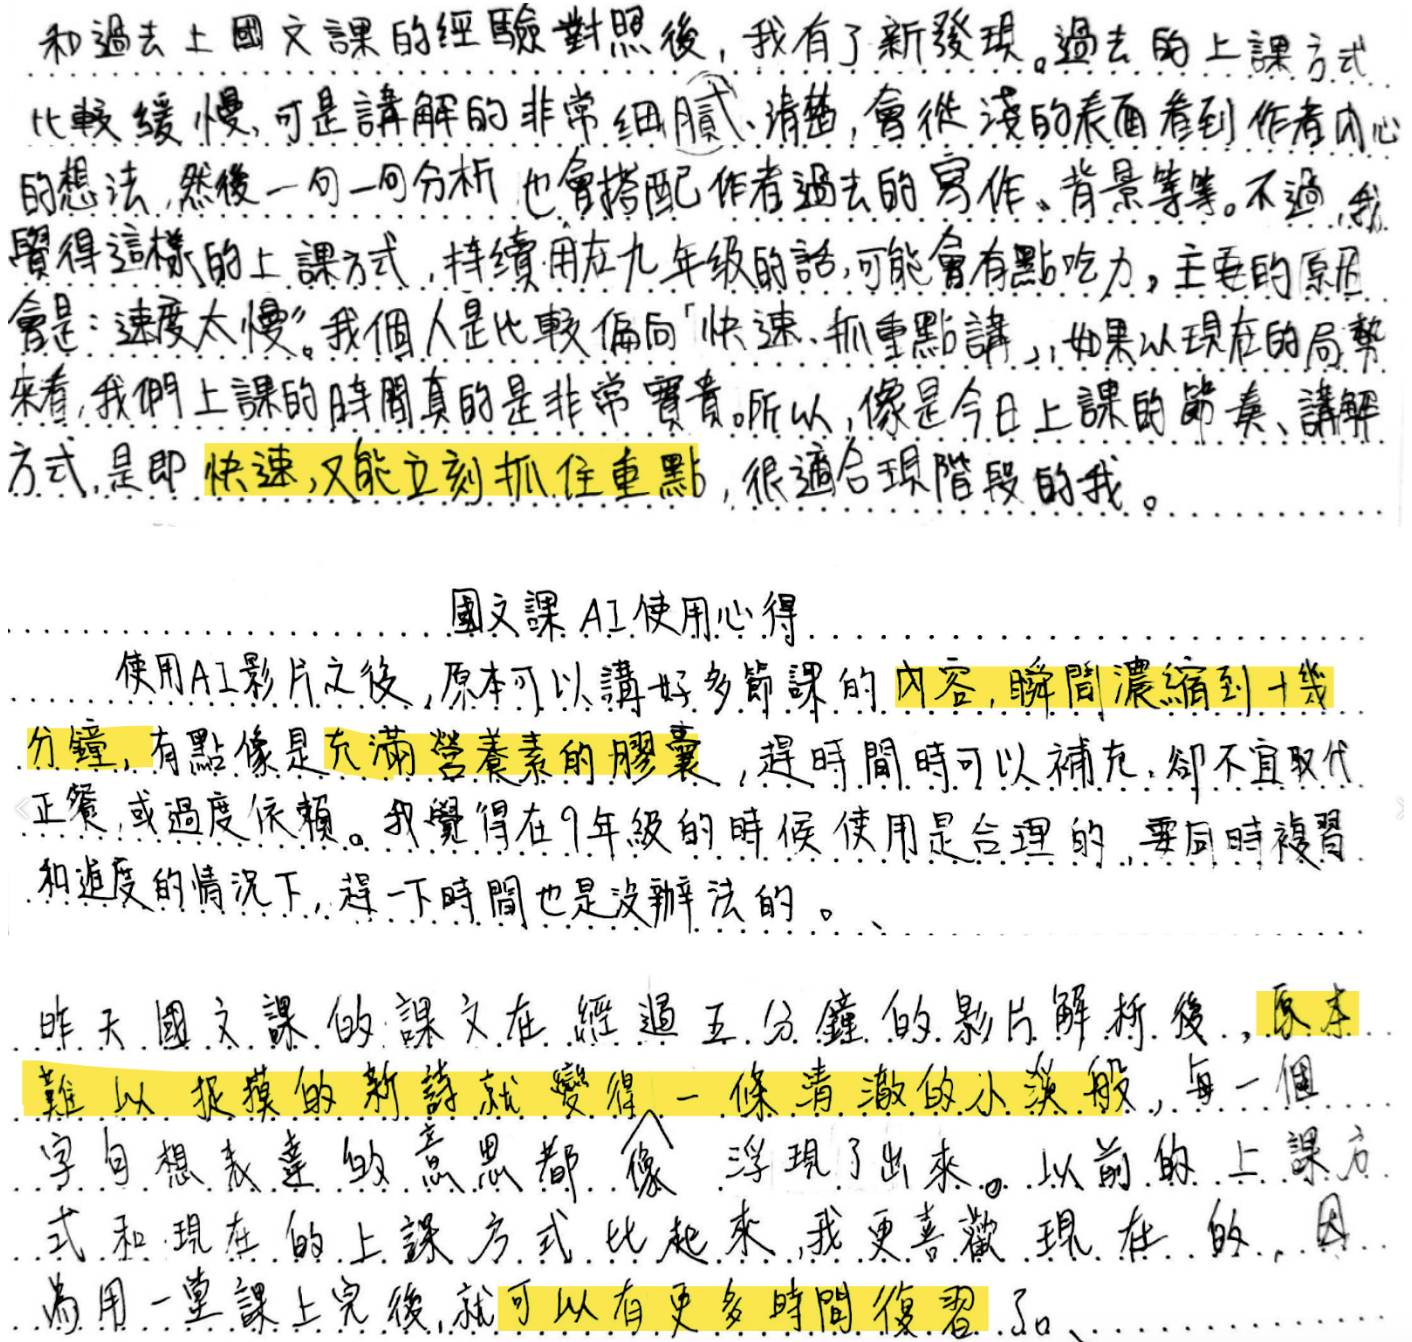 和過去上國文課的經驗對照後，我有了新發現。過去的上課方式
比較緩慢，可是講解的非常細膩、清楚，會從淺的表面看到作者內心
的想法，然後一句一句分析，也會搭配作者過去的寫作、背景等等。不過，我
覺得這樣的上課方式，持續用在九年級的話，可能會有點吃力。主要的原因
會是：速度太慢。我個人是比較偏向「快速、抓重點講」，如果以現在的局勢
來看，我們上課的時間真的是非常寶貴。所以，像是今日上課的節奏、講解
方式，是即快速，又能立刻抓住重點，很適合現階段的我。
國文課 AI 使用心得
使用AI影片之後，原本可以講好多節課的內容，瞬間濃縮到十幾
分鐘，有點像是充滿營養素的膠囊，趕時間時可以補充，卻不宜取代
正餐，或過度依賴。我覺得在9年級的時候使用是合理的，要同時複習
和進度的情況下，趕一下時間也是沒辦法的。
昨天國文課的課文在經過五分鐘的影片解析後，原本
難以捉摸的新詩就變得像一條清澈的小溪般，每一個
字句想表達的意思都浮現了出來。以前的上課方
式和現在的上課方式比起來，我更喜歡現在的，因
為用一堂課上完後，就可以有更多時間復習了。